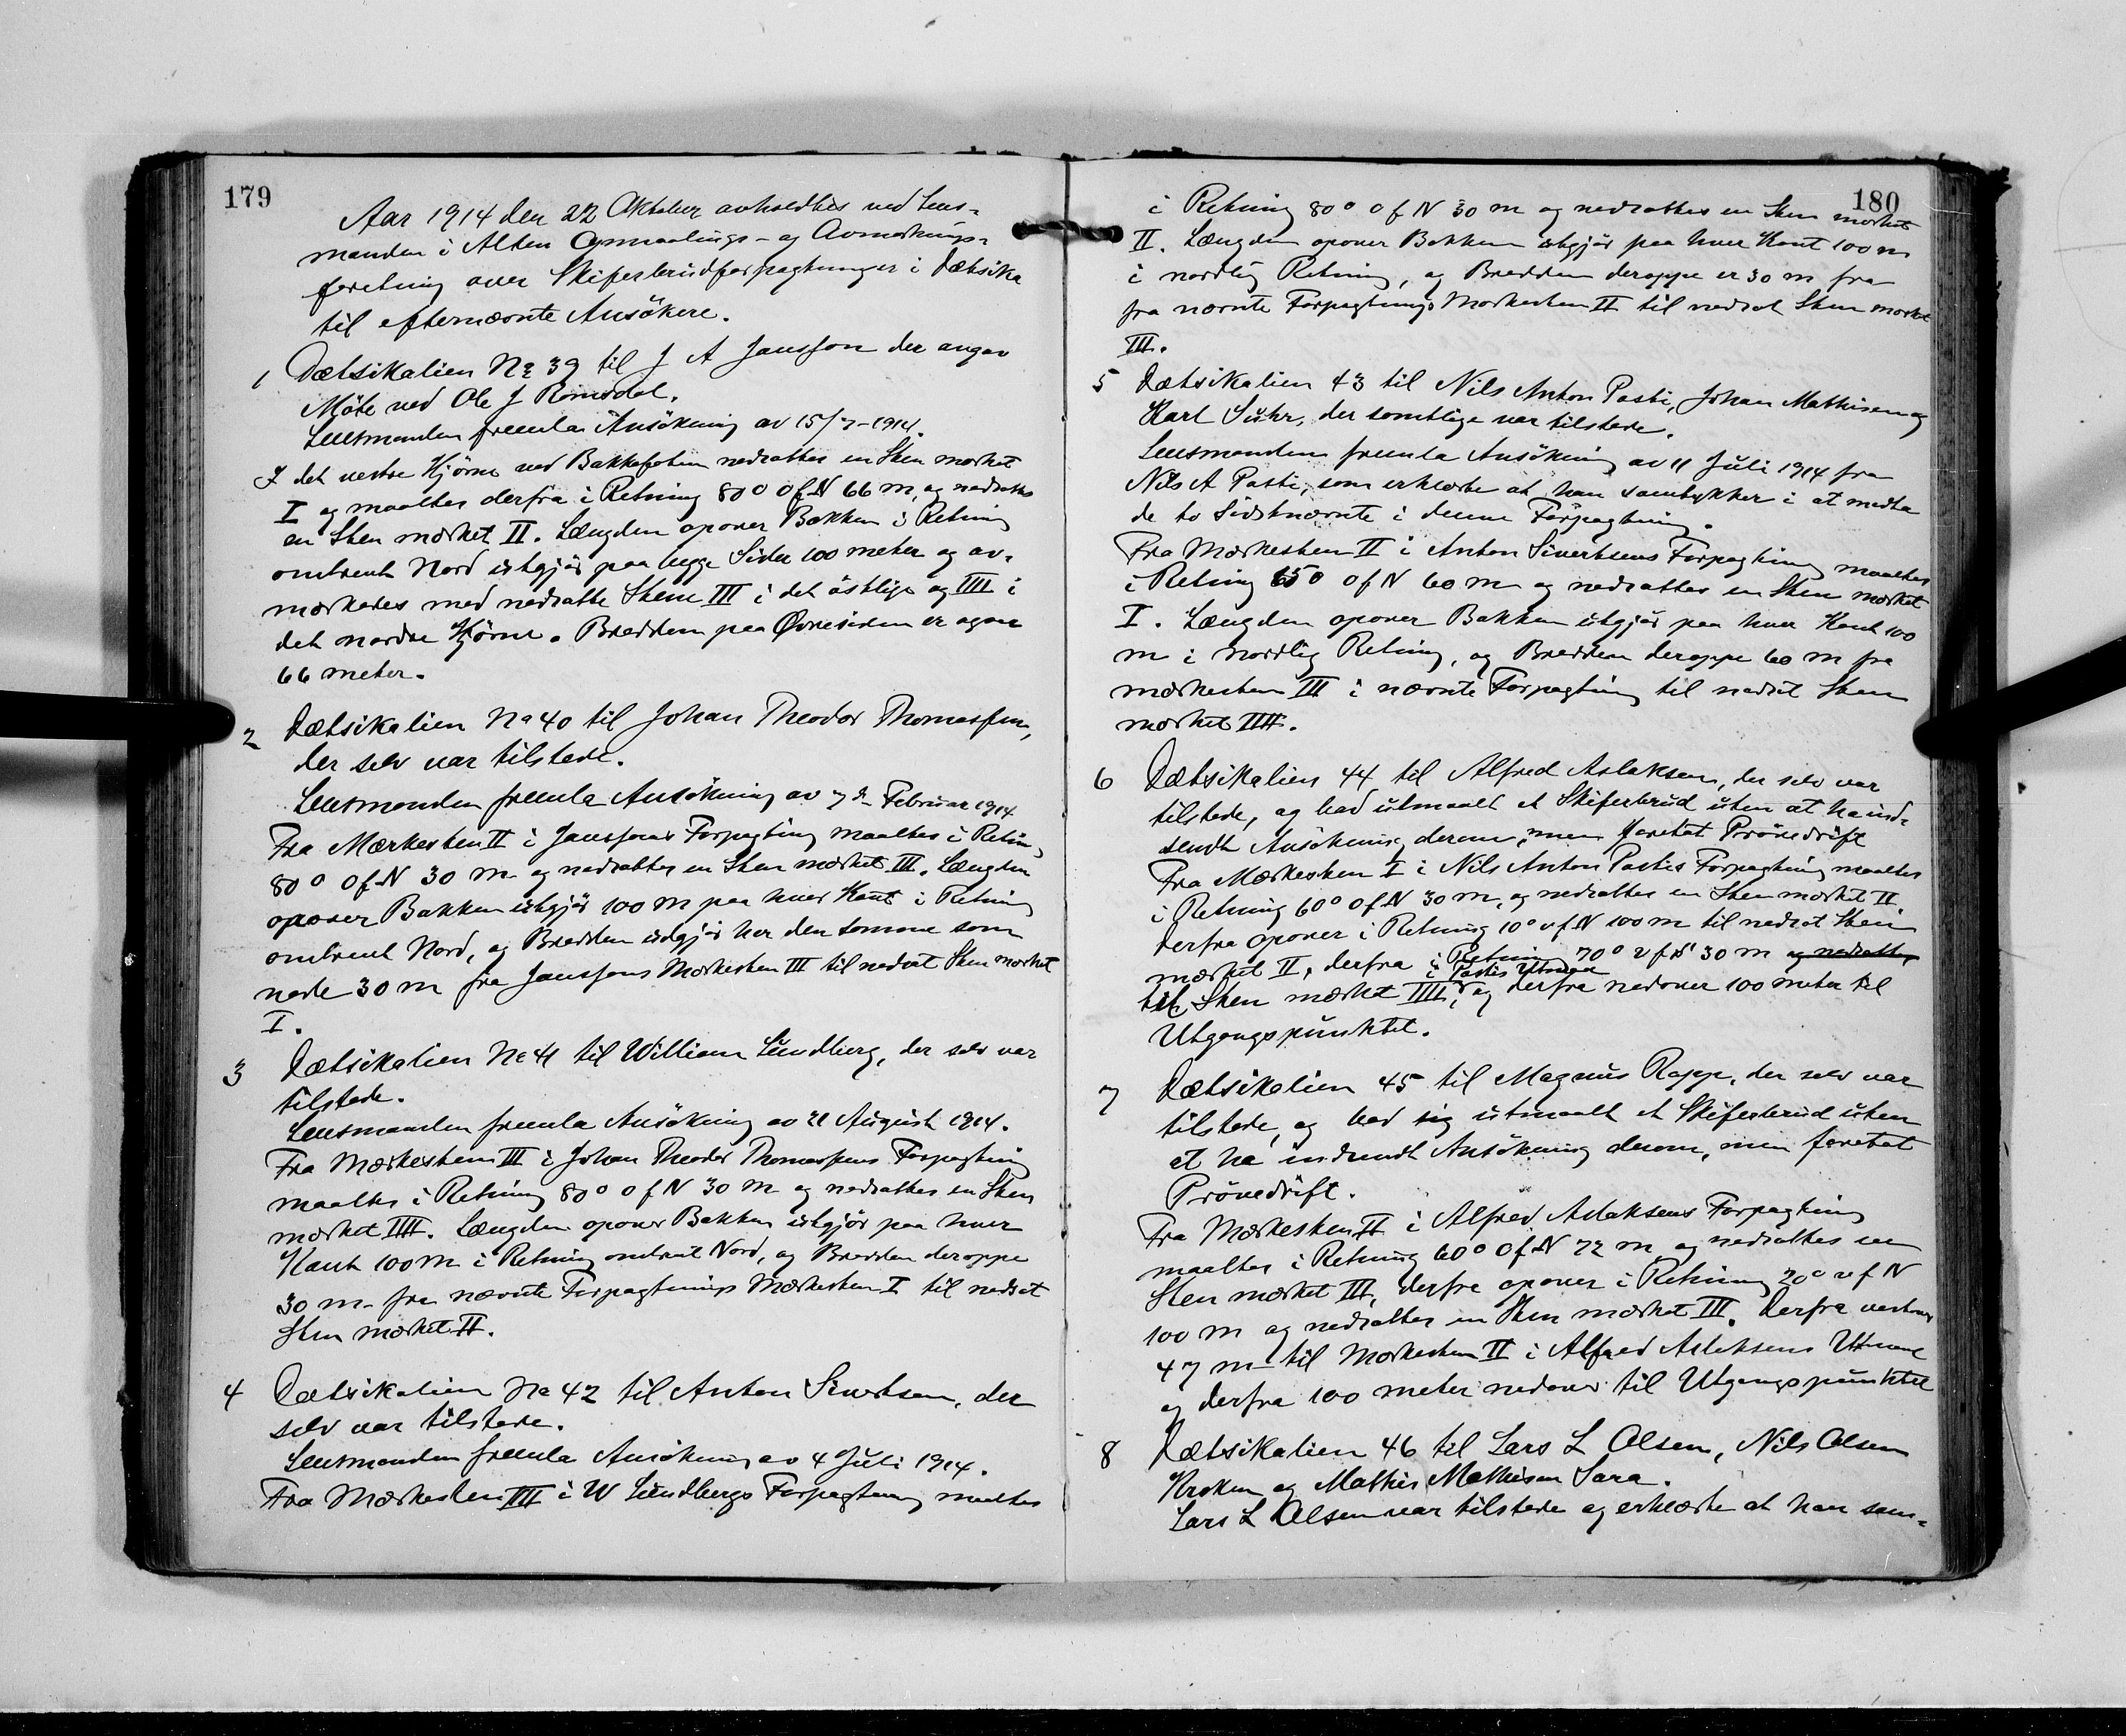 179
Aar 1914 den 22 Oktober avholdtes ved Lens-
manden i Alten Opmaalings- og Avmerknings-
foretning over Skiferbrudforpagtninger i Dætsika
til efternævnte Ansökere.
1 Dætsikalien No 39 til J A Jansson der angav
Möte ved Ole J Romsdal.
Lensmanden fremla Ansökning av 15/7-1914.
I det vestre Hjörne ved Bakkefoten nedsattes en Sten mærket
I og maaltes derfra i Retning 80° ø f N 66 m, og nedsattes
en Sten mærket II. Længden opover Bakken i Retning
omtrent Nord utgjör paa begge Sider 100 meter og av-
mærkedes med nedsatte Stene III i det östlige og IIII i
det nordre Hjörne. Bredden paa Øvresiden er ogsaa
66 meter.
2 Dætsikalien No 40 til Johan Theodor Thomassen,
der selv var tilstede.
Lensmanden fremla Ansökning av 7de Februar 1914
Fra Mærkesten II i Janssons Forpagtning maaltes i Retning
80° ø f N 30 m og nedsattes en Sten mærket III. Længden
opover Bakken utgjör 100 m paa hver Kant i Retning
omtrent Nord, og Bredden utgjör her den samme som
nede 30 m fra Janssons Mærkesten III til nedsat Sten mærket
I.
3 Dætsikalien No 41 til William Lundberg, der selv var
tilstede.
Lensmanden fremla Ansökning av 21 August 1914.
Fra Mærkesten III i Johan Theodor Thomassens Forpagtning
maaltes i Retning 80° ø f N 30 m og nedsattes en Sten
mærket IIII. Længden opover Bakken utgjör paa hver
Kant 100 m i Retning omtrent Nord, og Bredden deroppe
30 m fra nævnte Forpagtnings Mærkesten I til nedsat
Sten mærket II.
4 Dætsikalien No 42 til Anton Sivertsen, der
selv var tilstede.
Lensmanden fremla Ansökning av 4 Juli 1914.
Fra Mærkesten IIII i W Lundbergs Forpagtning maaltes
180
i Retning 80° ø f N 30 m og nedsattes en Sten mærket
II. Længden opover Bakken utgjör paa hver Kant 100 m
i nordlig Retning, og Bredden deroppe er 30 m fra
fra nævnte Forpagtnings Mærkesten II til nedsat Sten mærket
III.
5 Dætsikalien 43 til Nils Anton Pasti, Johan Mathisen og
Karl Suhr, der samtlige var tilstede.
Lensmanden fremla Ansökning av 11 Juli 1914 fra
Nils A Pasti, som erklærte at han samtykker i at medta
de to Sidstnævnte i denne Forpagtning.
Fra Mærkesten II i Anton Sivertsens Forpagtning maaltes
i Retning 65° ø f N 60 m og nedsattes en Sten mærket
I. Længden opover Bakken utgjör paa hver Kant 100
m i nordlig Retning, og Bredden deroppe 60 m fra
mærkesten III i nævnte Forpagtning til nedsat Sten
mærket IIII.
6 Dætsikalien 44 til Alfred Aslaksen, der selv var
tilstede, og bad utmaalt et Skiferbrud uten at ha ind-
sendt Ansökning derom, men foretat Prövedrift
Fra Mærkesten I i Nils Anton Pastis Forpagtning maaltes
i Retning 60° ø f N 30 m, og nedsattes en Sten mærket II
derfra opover i Retning 10° v f N 100 m til nedsat Sten
mærket II, derfra i Retning 70° v f N 30 m og nedsattes
i Pastis Utmaal
til Sten mærket IIII, og derfra nedover 100 meter til
Utgangspunktet.
7 Dætsikalien 45 til Magnus Rapp, der selv var
tilstede, og bad sig utmaalt et Skiferbrud uten
at ha indsendt Ansökning derom, men foretat
Prövedrift.
Fra Mærkesten II i Alfred Aslaksens Forpagtning
maaltes i Retning 60° ø f N 72 m og nedsattes en
Sten mærket III, derfra opover i Retning 20° v f N
100 m og nedsattes en Sten mærket III. Derfra vestover
47 m til Mærkesten II i Alfred Aslaksens Utmaal
og derfra 100 meter nedover til Utgangspunktet
8 Dætsikalien 46 til Lars L Olsen, Nils Olsen
Kroken og Mathis Mathisen Sara.
Lars L Olsen var tilstede og erklærte at han sam-